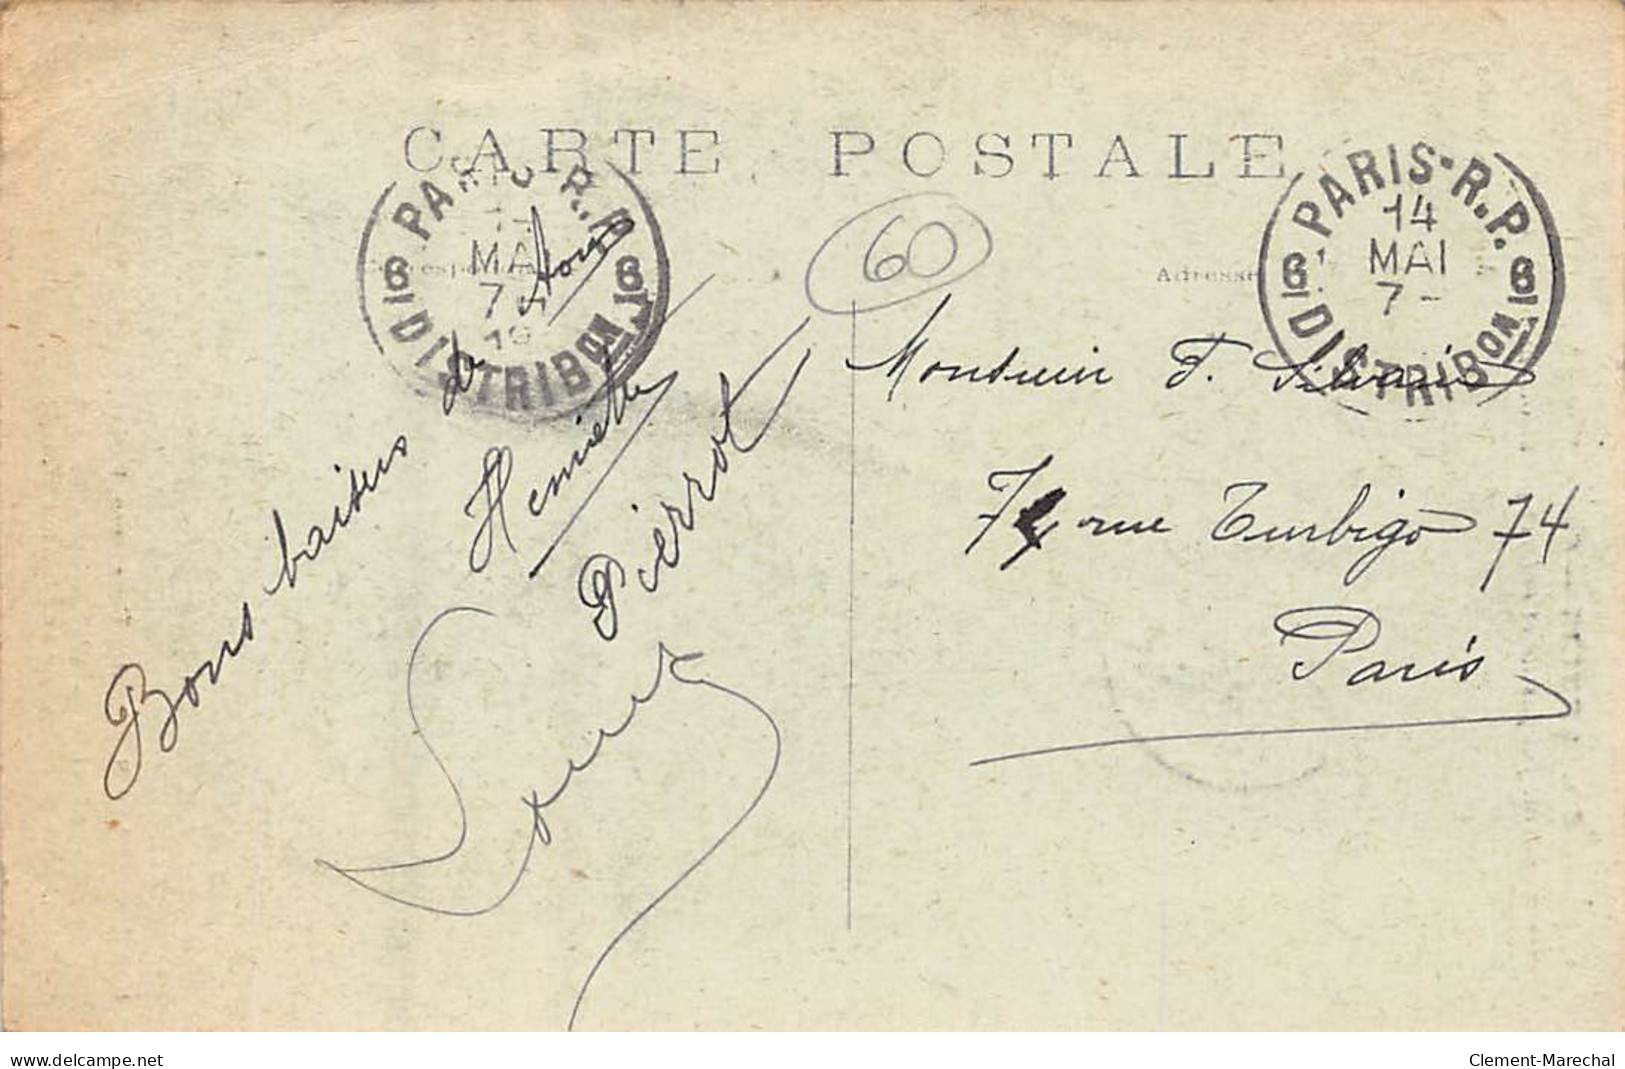 CARTE POSTALE
60
Adresse
PARIS·R.P.
14
MAI
7-
6 6
DISTRIBON
PARIS R.P.
MAI
7
19
6 6
DISTRIBON
Bons baisers de
Henriette
Pierrot
Monsieur F.
74 rue Turbigo 74
Paris
www.delcampe.net
Clement-Marechal